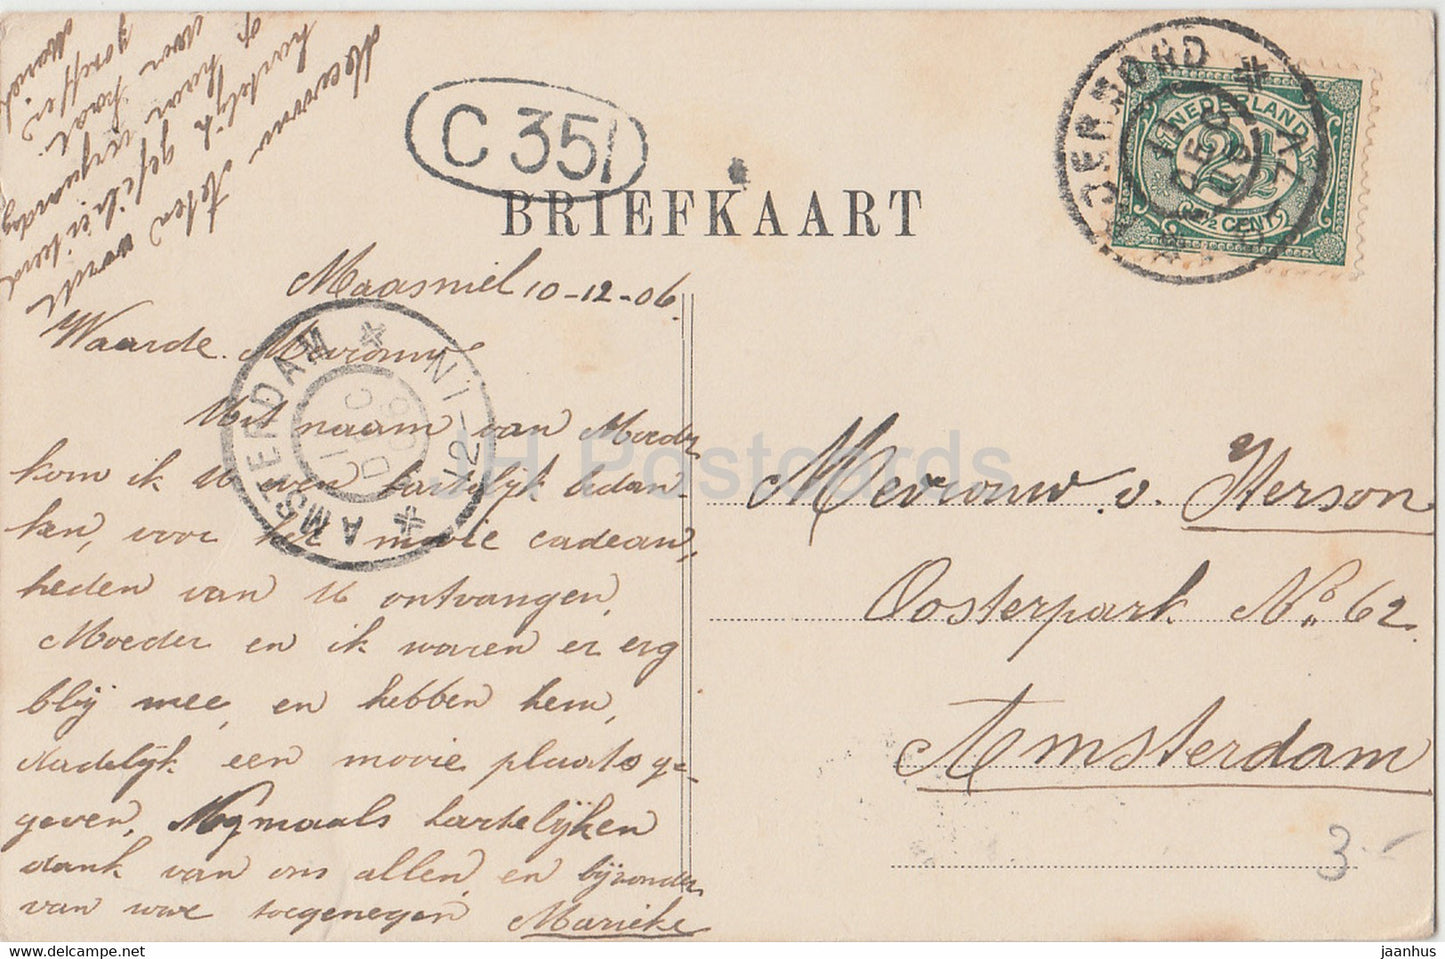 Mevrouw Neten wordt
hartelijk gefeliciteerd
op haar verjaardag
voor
C 351
BRIEFKAART
NEDERLAND
2½
2½ CENT
11 DEC 06
AMSTERDAM
DEC 06
Maasniel 10-12-06.
Waarde Mevrouw
Uit naam van Moeder
kom ik U even hartelijk bedan-
ken, voor het mooie cadeau,
heden van U ontvangen.
Moeder en ik waren er erg
blij mee, en hebben hem,
dadelijk een mooie plaats ge-
geven. Nogmaals hartelijken
dank van ons allen, en bijzonder
van uwe toegenegen Marieke
Mevrouw v. Herson
Oosterpark No. 62.
Amsterdam
3.-
JH Postcards
www.delcampe.net
jaanhus